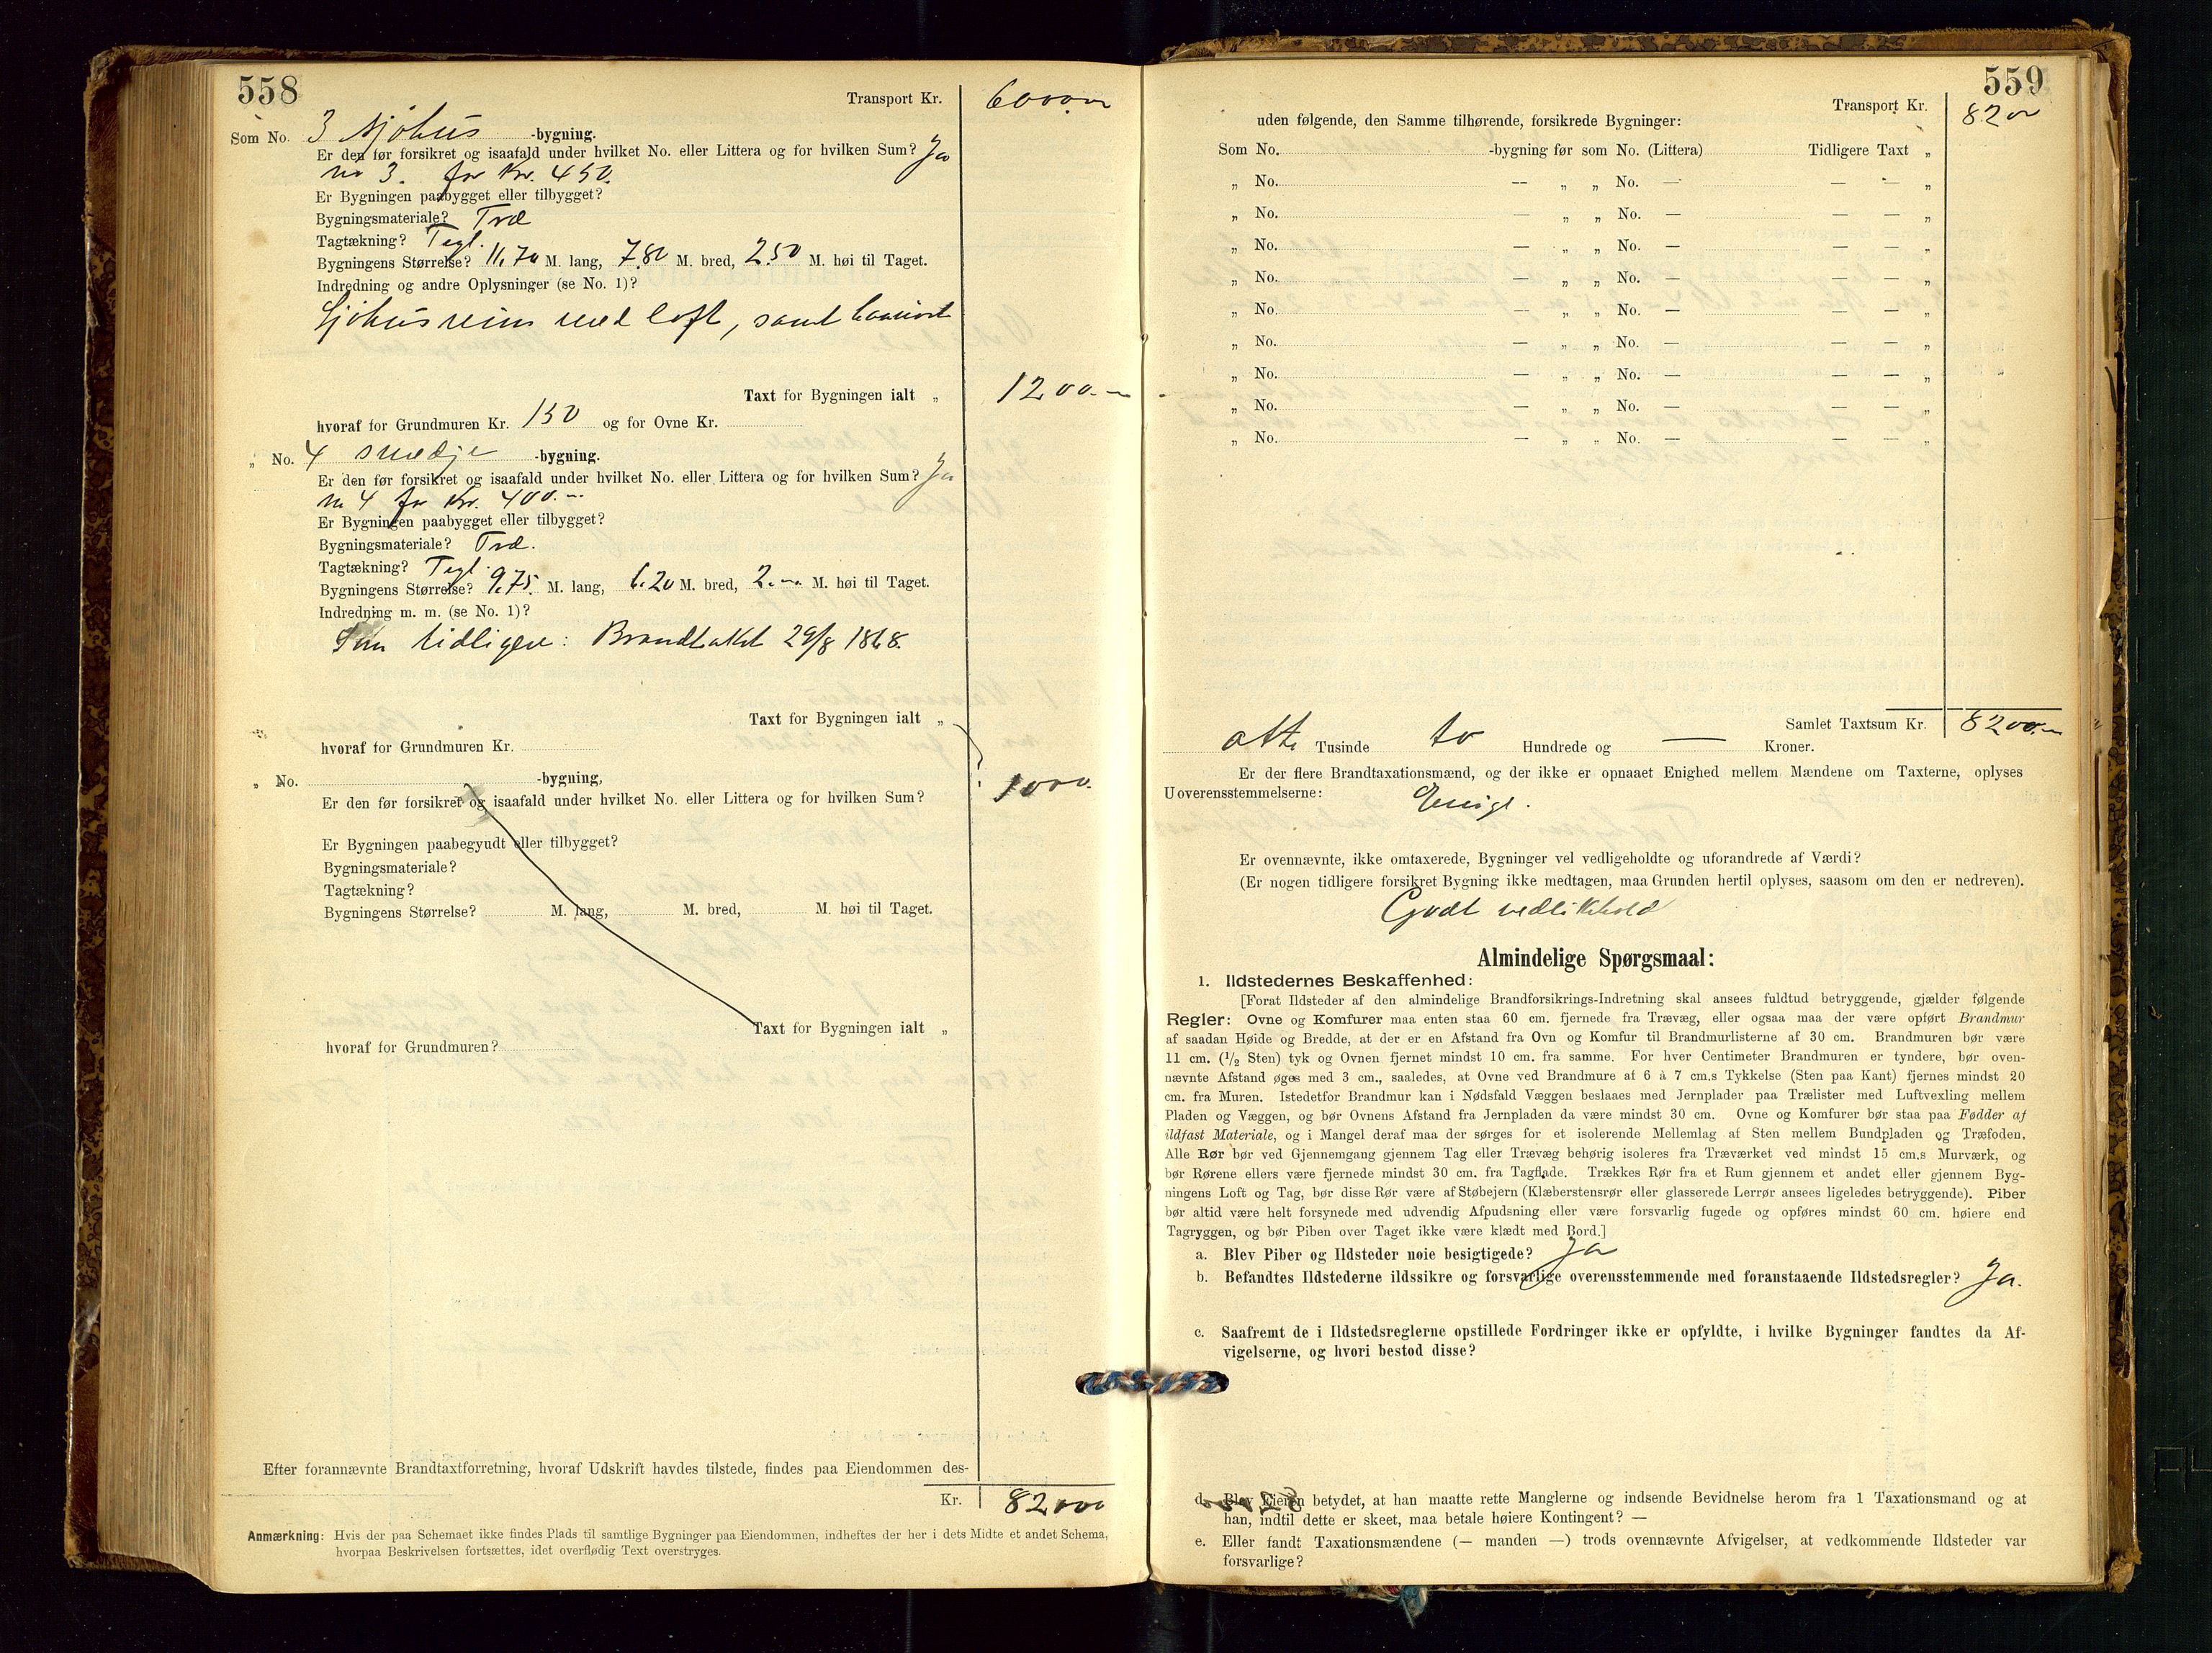 558
Transport Kr. 6000.-
Som No. 3 sjøhus -bygning.
Er den før forsikret og isaafald under hvilket No. eller Littera og for hvilken Sum? Ja
no 3. for Kr. 450.
Er Bygningen paabygget eller tilbygget?
Bygningsmateriale? Træ
Tagtækning? Tegl.
Bygningens Størrelse? 11,70 M. lang, 7.80 M. bred, 2.50 M. høi til Taget.
Indredning og andre Oplysninger (se No. 1)?
Sjøhusreim med loft, samt
Taxt for Bygningen ialt „ 1200.-
hvoraf for Grundmuren Kr. 150 og for Ovne Kr.
„ No. 4 smedje -bygning.
Er den før forsikret og isaafald under hvilket No. eller Littera og for hvilken Sum? Ja
no 4 for Kr. 400.-
Er Bygningen paabygget eller tilbygget?
Bygningsmateriale? Træ.
Tagtækning? Tegl.
Bygningens Størrelse? 9.75. M. lang, 6.20 M. bred, 2.- M. høi til Taget.
Indredning m. m. (se No. 1)?
Som tidligere: Brandtakst 29/8 1868.
Taxt for Bygningen ialt „
hvoraf for Grundmuren Kr.
„ No. -bygning,
1000.
Er den før forsikret og isaafald under hvilket No. eller Littera og for hvilken Sum?
Er Bygningen paabegyudt eller tilbygget?
Bygningsmateriale?
Tagtækning?
Bygningens Størrelse? M. lang, M. bred, M. høi til Taget.
Taxt for Bygningen ialt „
hvoraf for Grundmuren?
Efter forannævnte Brandtaxtforretning, hvoraf Udskrift havdes tilstede, findes paa Eiendommen des-
Kr. 8200.-
Anmærkning: Hvis der paa Schemaet ikke findes Plads til samtlige Bygninger paa Eiendommen, indheftes der her i dets Midte et andet Schema,
hvorpaa Beskrivelsen fortsættes, idet overflødig Text overstryges.
559
Transport Kr. 8200
uden følgende, den Samme tilhørende, forsikrede Bygninger:
Som No. -bygning før som No. (Littera) Tidligere Taxt „
„ No. — „ „ No. — — — „
„ No. — „ „ No. — — — „
„ No. — „ „ No. — — — „
„ No. — „ „ No. — — — „
„ No. — „ „ No. — — — „
„ No. — „ „ No. — — — „
„ No. — „ „ No. — — — „
„ No. — „ „ No. — — — „
„ No. — „ „ No. — — — „
Samlet Taxtsum Kr. 8200.-
otte Tusinde to Hundrede og — Kroner.
Er der flere Brandtaxationsmænd, og der ikke er opnaaet Enighed mellem Mændene om Taxterne, oplyses
Uoverensstemmelserne: Enige.
Er ovennævnte, ikke omtaxerede, Bygninger vel vedligeholdte og uforandrede af Værdi?
(Er nogen tidligere forsikret Bygning ikke medtagen, maa Grunden hertil oplyses, saasom om den er nedreven).
Godt vedlikehold
Almindelige Spørgsmaal:
1. Ildstedernes Beskaffenhed:
[Forat Ildsteder af den almindelige Brandforsikrings-Indretning skal ansees fuldtud betryggende, gjælder følgende
Regler: Ovne og Komfurer maa enten staa 60 cm. fjernede fra Trævæg, eller ogsaa maa der være opført Brandmur
af saadan Høide og Bredde, at der er en Afstand fra Ovn og Komfur til Brandmurlisterne af 30 cm. Brandmuren bør være
11 cm. (1/2 Sten) tyk og Ovnen fjernet mindst 10 cm. fra samme. For hver Centimeter Brandmuren er tyndere, bør oven-
nævnte Afstand øges med 3 cm., saaledes, at Ovne ved Brandmure af 6 à 7 cm.s Tykkelse (Sten paa Kant) fjernes mindst 20
cm. fra Muren. Istedetfor Brandmur kan i Nødsfald Væggen beslaaes med Jernplader paa Trælister med Luftvexling mellem
Pladen og Væggen, og bør Ovnens Afstand fra Jernpladen da være mindst 30 cm. Ovne og Komfurer bør staa paa Fødder af
ildfast Materiale, og i Mangel deraf maa der sørges for et isolerende Mellemlag af Sten mellem Bundpladen og Træfoden.
Alle Rør bør ved Gjennemgang gjennem Tag eller Trævæg behørig isoleres fra Træværket ved mindst 15 cm.s Murværk, og
bør Rørene ellers være fjernede mindst 30 cm. fra Tagflade. Trækkes Rør fra et Rum gjennem et andet eller gjennem Byg-
ningens Loft og Tag, bør disse Rør være af Støbejern (Klæberstensrør eller glasserede Lerrør ansees ligeledes betryggende). Piber
bør altid være helt forsynede med udvendig Afpudsning eller være forsvarlig fugede og opføres mindst 60 cm. høiere end
Tagryggen, og bør Piben over Taget ikke være klædt med Bord.]
a. Blev Piber og Ildsteder nøie besigtigede? Ja
b. Befandtes Ildstederne ildssikre og forsvarlige overensstemmende med foranstaaende Ildstedsregler? Ja.
c. Saafremt de i Ildstedsreglerne opstillede Fordringer ikke er opfyldte, i hvilke Bygninger fandtes da Af-
vigelserne, og hvori bestod disse?
d. Blev Eieren betydet, at han maatte rette Manglerne og indsende Bevidnelse herom fra 1 Taxationsmand og at
han, indtil dette er skeet, maa betale høiere Kontingent? —
e. Eller fandt Taxationsmændene (— manden —) trods ovennævnte Afvigelser, at vedkommende Ildsteder var
forsvarlige?